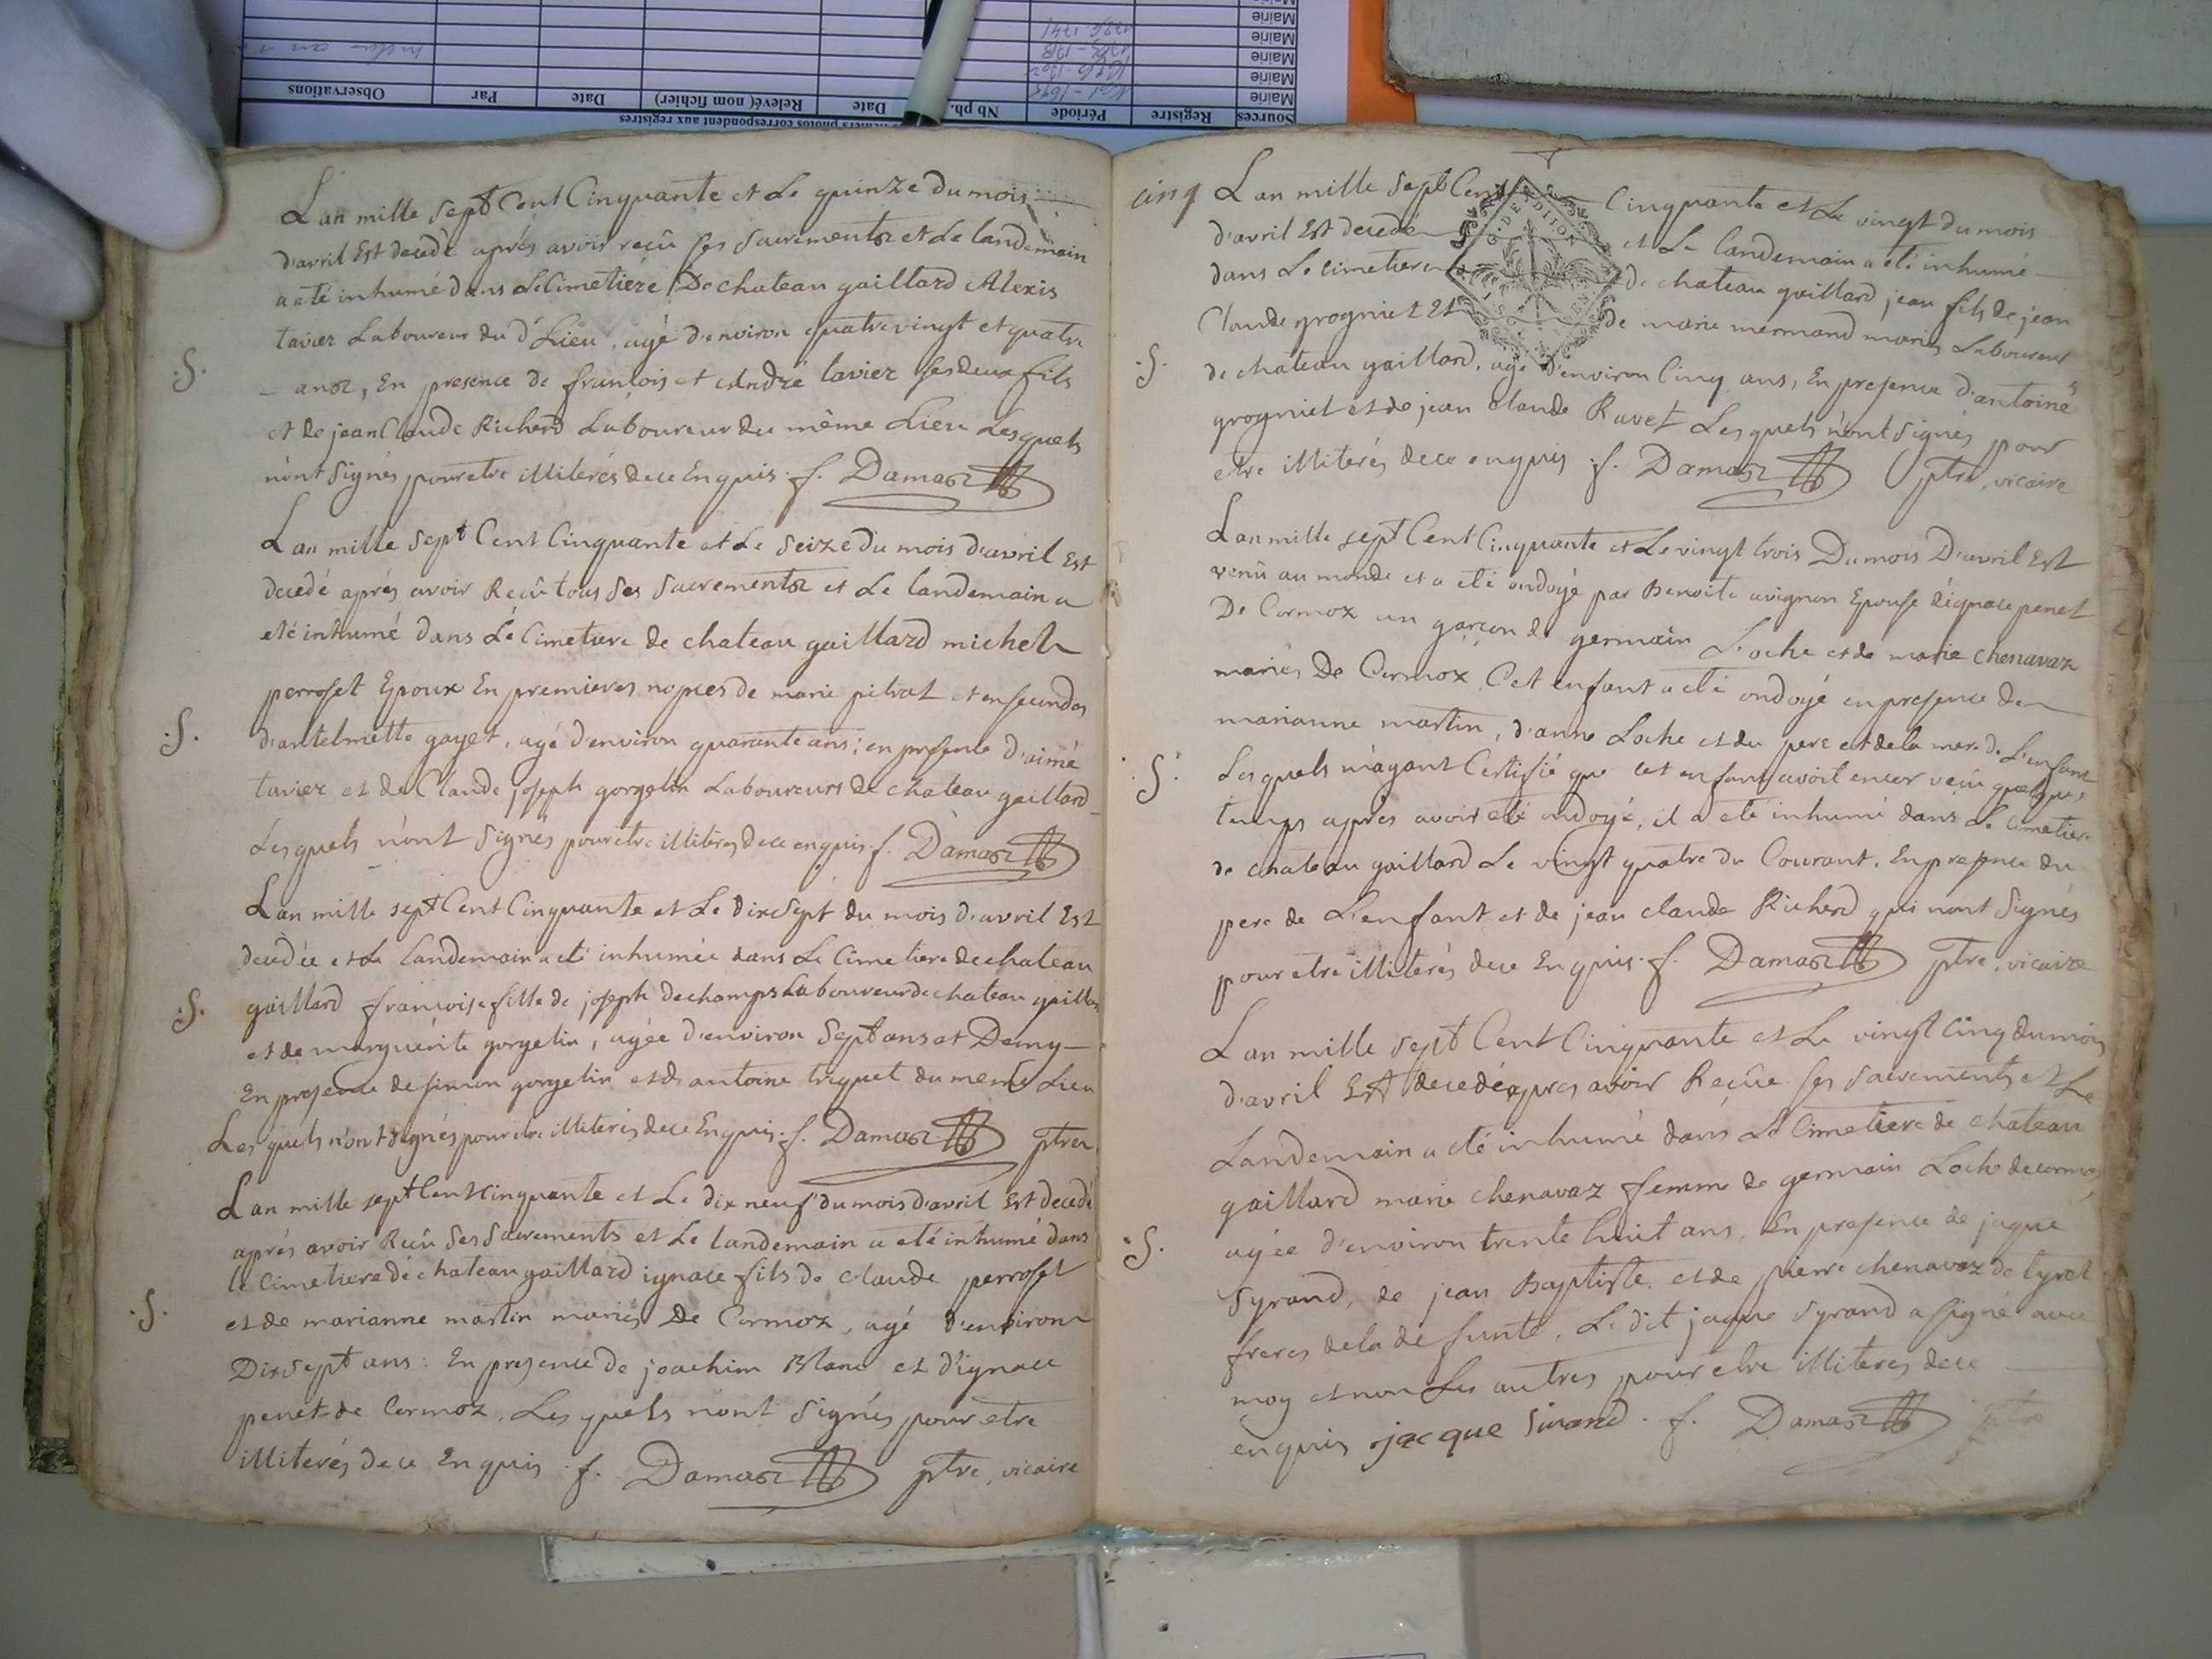 Observations Par Date Relevé(nom fichier) Date Nb ph. Période Registre Sources
Mairie
Mairie
Mairie
Mairie
Lan mille sept Cent Cinquante et Le quinze du mois
d'avril Est decedé aprés avoir reçû ses sacrements et Le landemain
a eté inhumé dans Le Cimetiére De chateau gaillard Alexis
tavier Laboureur du d Lieu, agé d'environ quatre vingt et quatre
ans, En presence de francois et André tavier ses deux fils
et de jean Claude Richerd Laboureur du même Lieu Lesquels
n'ont signés pour etre illiterés de ce Enquis. f. Damas
.S.
Lan mille sept Cent Cinquante et Le seize du mois d'avril Est
decedé aprés avoir Reçû tous ses sacrements et Le landemain a
eté inhumé dans Le Cimetiere de chateau gaillard michel
perroset Epoux En premieres nopces de marie pitrat et en secondes
d'antelmette gayet, agé d'environ quarante ans; en presence d'aimé
tavier et de Claude joseph gorgelin Laboureurs de chateau gaillard
Lesquels n'ont signés pour etre illiterés de ce enquis. f. Damas
.S.
Lan mille sept Cent Cinquante et Le dix sept du mois d'avril Est
decedée et Le landemain a eté inhumée dans Le Cimetiere de chateau
gaillard francoise fille de joseph dechamps Laboureur de chateau gaillard
.S.
et de marguerite gorgelin, agée d'environ Sept ans et Demy
En presence de simon gorgelin et d'antoine triquet du meme Lieu
Les quels n'ont signés pour etre illiterés de ce Enquis. f. Damas ptre
Lan mille sept Cent cinquante et Le dix neuf du mois d'avril Est decedé
aprés avoir Reçû ses sacrements et Le landemain a eté inhumé dans
le Cimetiere de chateau gaillard ignace fils de claude perroset
et de marianne martin mariés De Cormoz, agé d'environ
.S.
Dix sept ans: En presence de joachim Blanc et d'ignace
penet de Cormoz, Les quels n'ont signés pour etre
illiterés de ce Enquis. f. Damas ptre, vicaire
cinq
Lan mille sept Cent Cinquante et Le vingt du mois
d'avril Est decedé et Le landemain a eté inhumé
dans Le cimetiere de chateau gaillard jean fils de jean
Claude grogniet Et de marie mermand mariés Laboureur
de chateau gaillard, agé d'environ Cinq ans, En presence d'antoine
.S.
grogniet et de jean claude Ravet Lesquels n'ont signés pour
etre illiterés de ce enquis. f. Damas ptre, vicaire
Lan mille sept Cent Cinquante et Le vingt trois Du mois D'avril Est
venû au monde et a eté ondoyé par Benoite avignon Epouse d'ignace penet
De Cormoz un garçon de germain Loche et de marie chenavaz
mariés De Cormoz Cet enfant a eté ondoyé en presence de
marianne martin, d'anne Loche et du pere et de la mere de L'enfant
Lesquels m'ayant Certifié que cet enfant avoit encor vecû quelques
.S.
temps aprés avoir eté ondoyé, il a eté inhumé dans Le Cimetiere
de chateau gaillard Le vingt quatre du Courant. En presence du
pere de L'enfant et de jean claude Richerd qui n'ont signés
pour etre illiterés de ce Enquis. f. Damas ptre, vicaire
Lan mille sept Cent Cinquante et Le vingt cinq du mois
d'avril Est decedé apres avoir Reçûe ses sacrements et Le
Landemain a eté inhumé dans Le Cimetiere de chateau
gaillard marie chenavaz femme de germain Loche de cormoz
agée d'environ trente huit ans, En presence de jaque
.S.
Syrand, de jean Baptiste et de pierre chenavaz de
freres de la defunte, Le dit jaque Syrand a signé avec
moy et non Les autres pour etre illiteres de ce
enquis jacque Sirand. f. Damas ptre